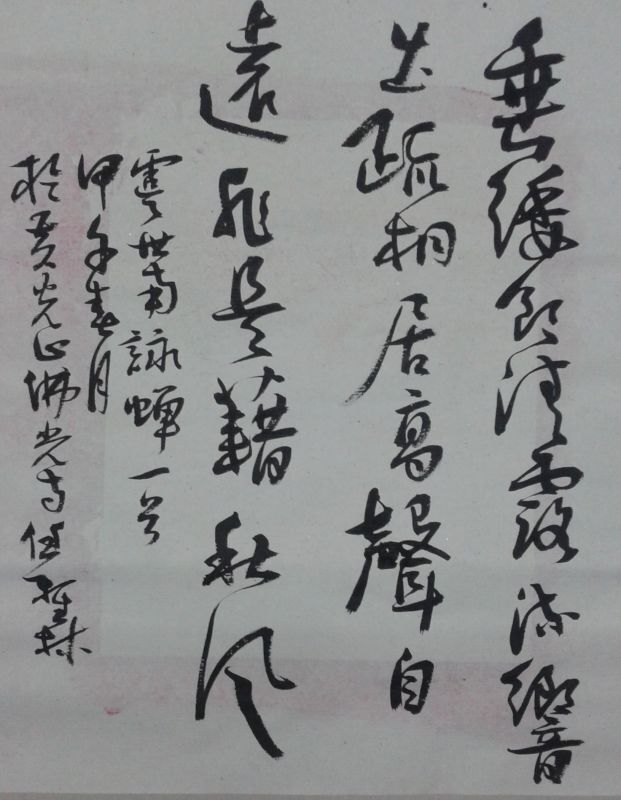 垂緌飲清露流響
出疏桐居高聲自
遠非是藉秋風
虞世南詠蟬一首
甲午春月
於光佛光寺林